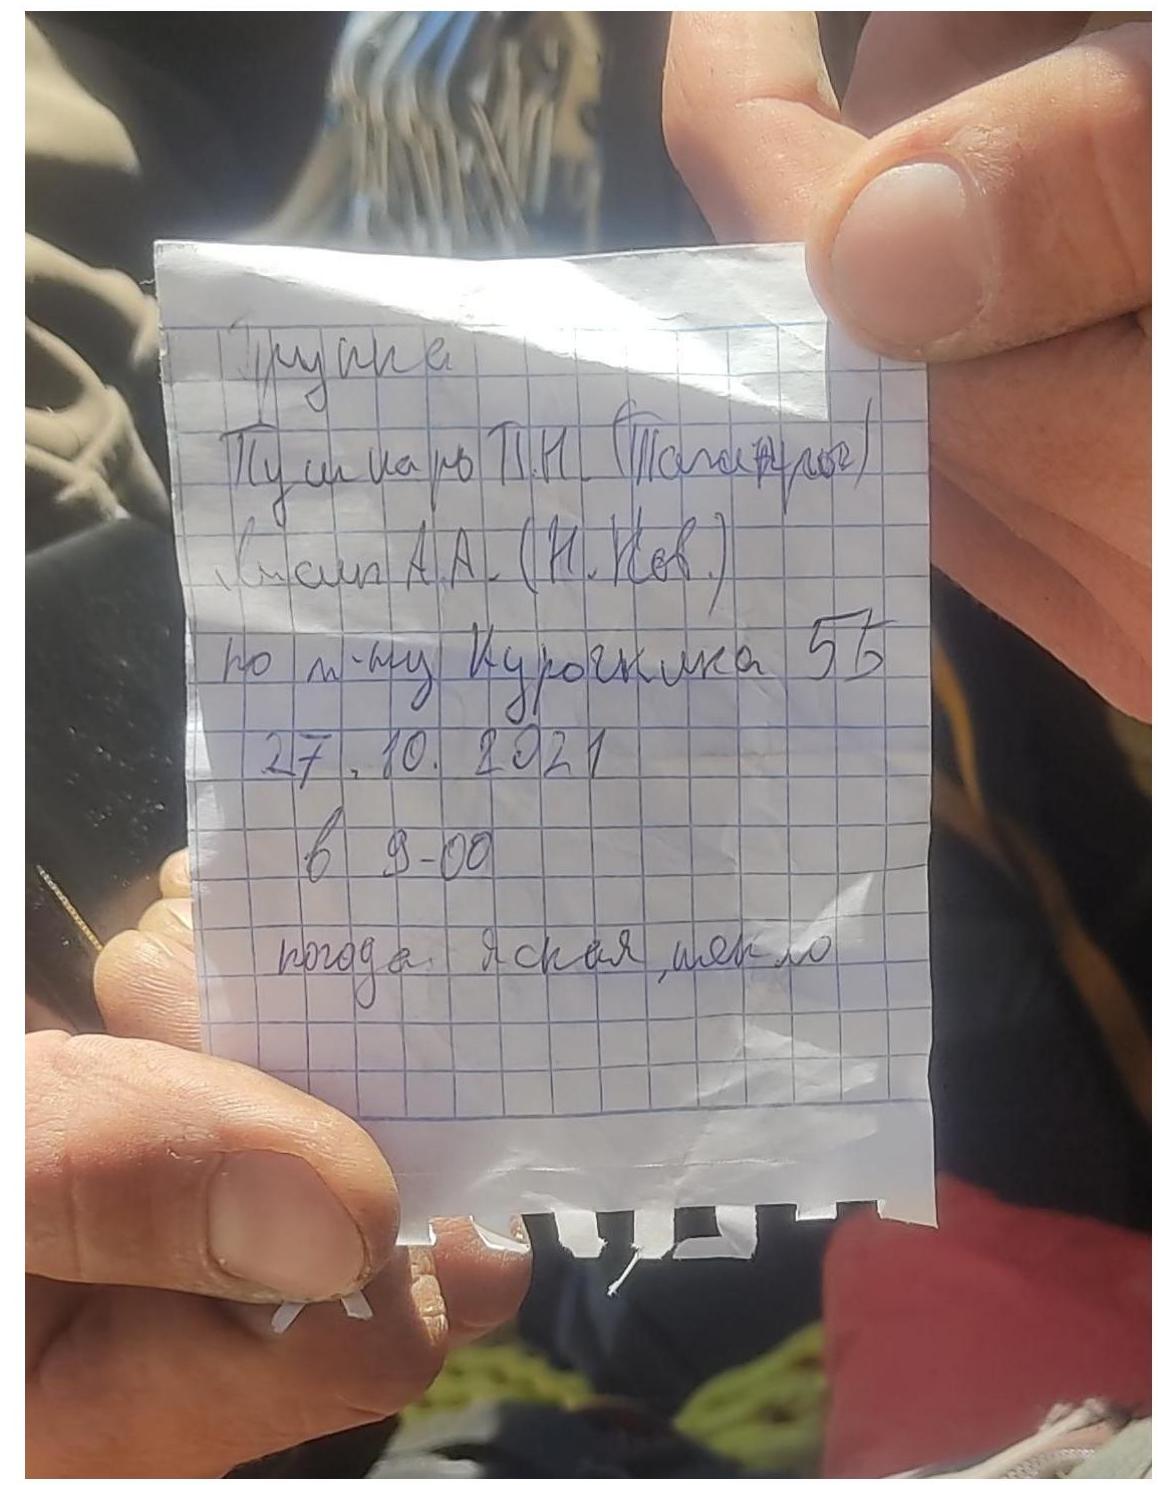 Группа
Пушкарь П.Н. (Таганрог)
А.А. (Н.Нов.)
по м-ту Курочкина 5Б
27.10.2021
в 9-00
погода ясная, тепло